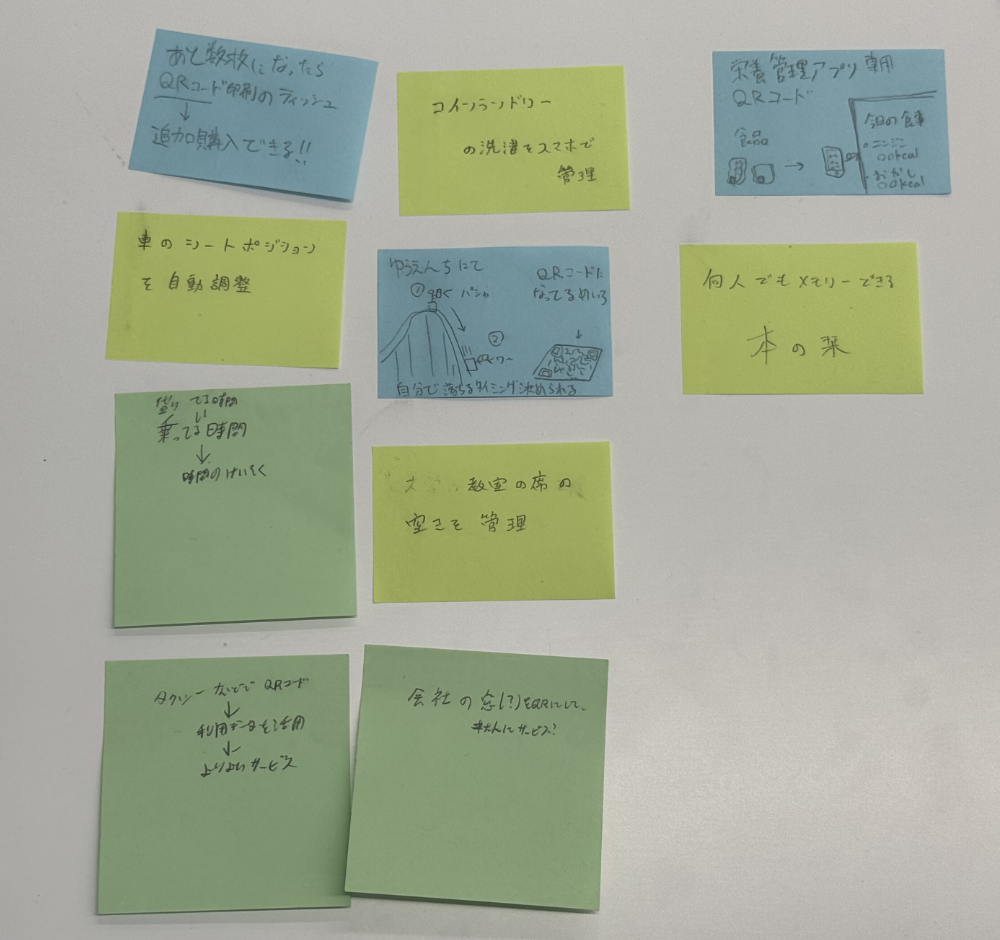 あと数枚になったら
QRコード印刷のティッシュ
↓
追加購入できる!!
コインランドリー
の洗濯をスマホで
管理
栄養管理アプリ専用
QRコード
食品
→
今日の食事
・ニンジン
〇〇kcal
・おかし
〇〇kcal
車のシートポジション
を自動調整
ゆうえんちにて
① パシャ
↓
②
QRコードに
なってるめいろ
↓
自分で落ちるタイミング決められる
何人でもメモリーできる
本の栞
借りてる時間
い
乗ってる時間
↓
時間のけいそく
教室の席の
空きを管理
タクシーなどで QRコード
↓
利用データを活用
↓
よりよいサービス
会社の窓(?)をQRにして、
サービス?